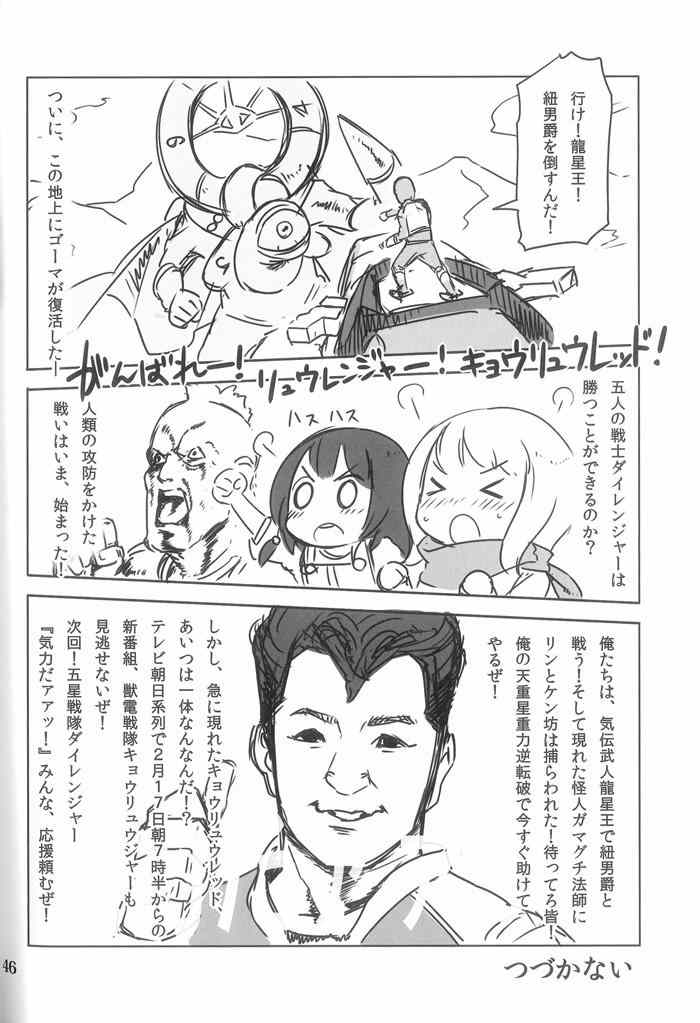 行け！龍星王！
紐男爵を倒すんだ！
ついに、この地上にゴーマが復活したー
6
4
8
がんばれー！
リュウレンジャー！
キョウリュウレッド！
五人の戦士ダイレンジャーは
勝つことができるのか？
ハスハス
人類の攻防をかけた
戦いはいま、始まった！
俺たちは、気伝武人龍星王で紐男爵と
戦う！そして現れた怪人ガマグチ法師に
リンとケン坊は捕らわれた！待ってろ皆！
俺の天重星重力逆転破で今すぐ助けて
やるぜ！
しかし、急に現れたキョウリュウレッド、
あいつは一体なんなんだ！？
テレビ朝日系列で２月１７日朝７時半からの
新番組、獣電戦隊キョウリュウジャーも
見逃せないぜ！
次回！五星戦隊ダイレンジャー
『気力だァァッ！』みんな、応援頼むぜ！
つづかない
46